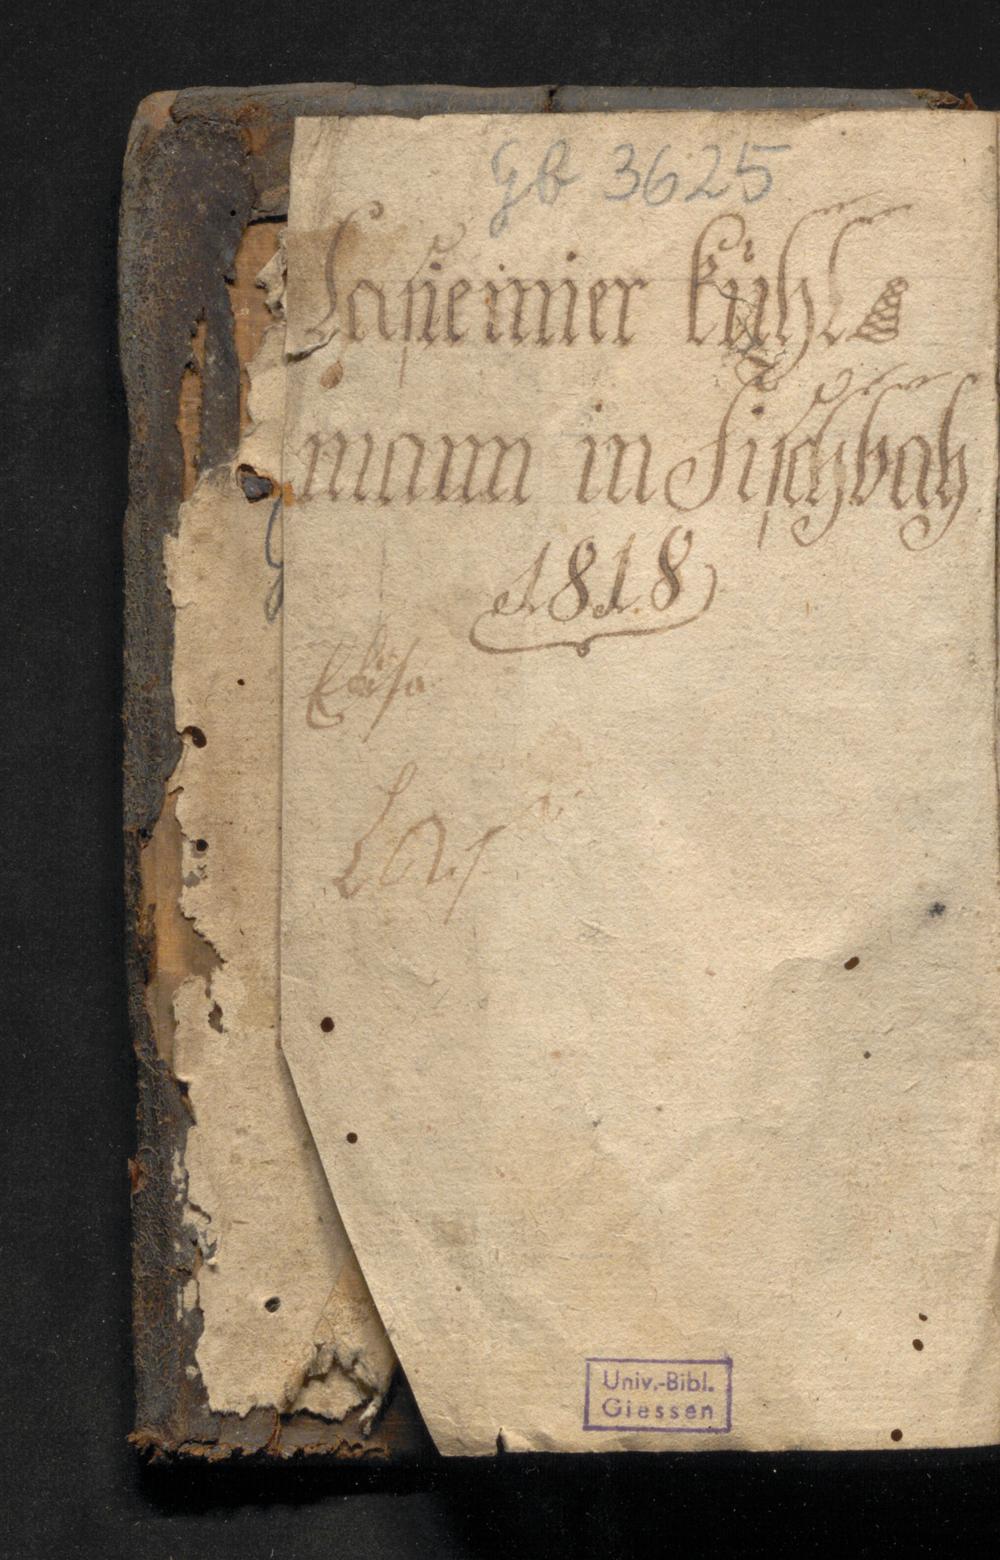 Gb 3625
Casiemier Kühl
mann in Fischbach
1818
Elisa
Univ.-Bibl.
Giessen